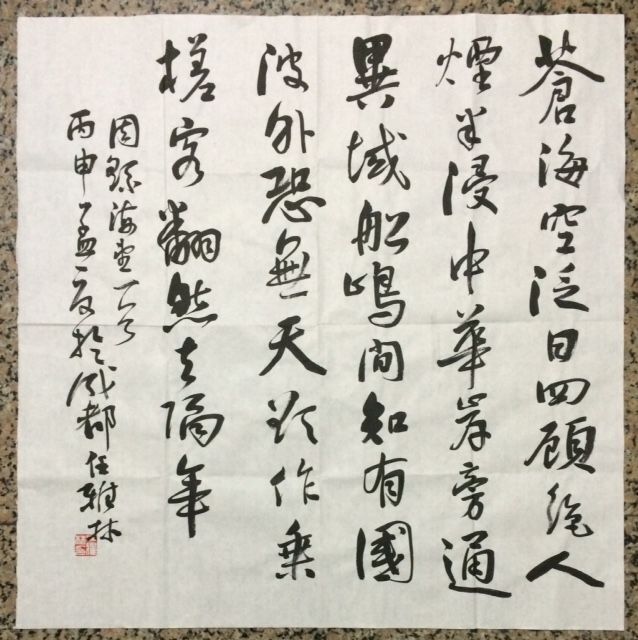 蒼海空泛日四顧絕人
煙半浸中華岸旁通
異域船嶋間知有國
波外恐無天欲作乘
槎客翻然去隔年
周繇海望一首
丙申孟夏於成都任雅林